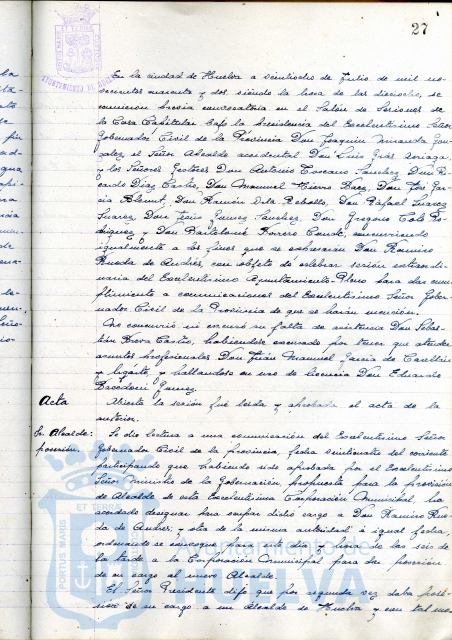 27
En la ciudad de Huelva a veintiocho de Julio de mil no-
vecientos cuarenta y dos, siendo la hora de las dieciocho, se
reunieron previa convocatoria en el Salón de Sesiones de
la Casa Capitular bajo la presidencia del Excelentísimo Señor
Gobernador Civil de la Provincia Don Joaquín Miranda Gon-
zalez el Señor Alcalde accidental Don Luis
y los Señores Gestores Don Antonio Toscano Sanchez, Don Ri-
cardo Diaz Castro, Don Manuel Fierro Baez, Don José Gar-
cia Don Ramón Rebollo, Don Rafael Suarez
Suarez, Don Gomez Sanchez, Don Gregorio Ro-
driguez y Don Bartolomé Borrero Conde, concurriendo
igualmente a los fines que se expresarán Don Ramiro
Rueda de Andrés, con objeto de celebrar sesión extraordi-
naria del Excelentísimo Ayuntamiento Pleno para dar cum-
plimiento a comunicaciones del Excelentísimo Señor Gober-
nador Civil de la Provincia de que se hará mención.
No concurrió ni excusó su falta de asistencia Don Sebas-
tián habiéndose excusado por tener que atender
asuntos profesionales Don Juan Manuel Garcia de
y y hallándose en uso de licencia Don Eduardo
Gomez
Acta Abierta la sesión fué leida y aprobada el acta de la
anterior.
Sr. Alcalde: Se dio lectura a una comunicación del Excelentísimo Señor
posesión. Gobernador Civil de la provincia, fecha veintisiete del corriente
participando que habiendo sido aprobada por el Excelentísimo
Señor Ministro de la Gobernación, propuesta para la provisión
de Alcalde de esta Excelentísima Corporación Municipal, ha
acordado designar para ocupar dicho cargo a Don Ramiro Rue-
da de Andrés; y otra de la misma autoridad e igual fecha,
ordenando se convoque para este dia y hora de las seis de
la tarde a la Corporación Municipal para dar posesión
de su cargo al nuevo Alcalde.
El Señor Presidente dijo que por segunda vez daba pose-
sión de su cargo a un Alcalde de Huelva y con tal mo-
AYUNTAMIENTO DE HUELVA
PORTUS MARIS
ET TERRAE
Ayuntamiento de
HUELVA